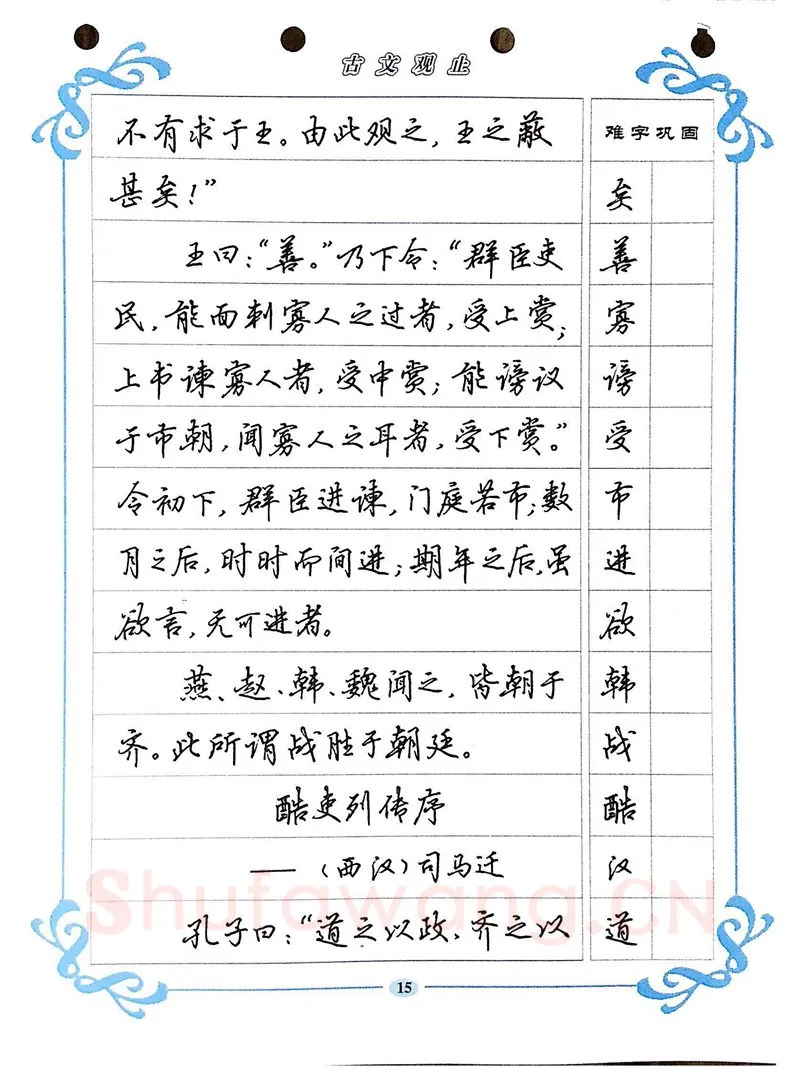 古文观止
不有求于王。由此观之，王之蔽
甚矣！”
王曰：“善。”乃下令：“群臣吏
民，能面刺寡人之过者，受上赏；
上书谏寡人者，受中赏；能谤议
于市朝，闻寡人之耳者，受下赏。”
令初下，群臣进谏，门庭若市；数
月之后，时时而间进；期年之后，虽
欲言，无可进者。
燕、赵、韩、魏闻之，皆朝于
齐。此所谓战胜于朝廷。
酷吏列传序
——（西汉）司马迁
孔子曰：“道之以政，齐之以
难字巩固
矣
善
寡
谤
受
市
进
欲
韩
战
酷
汉
道
15
Shufawang.CN